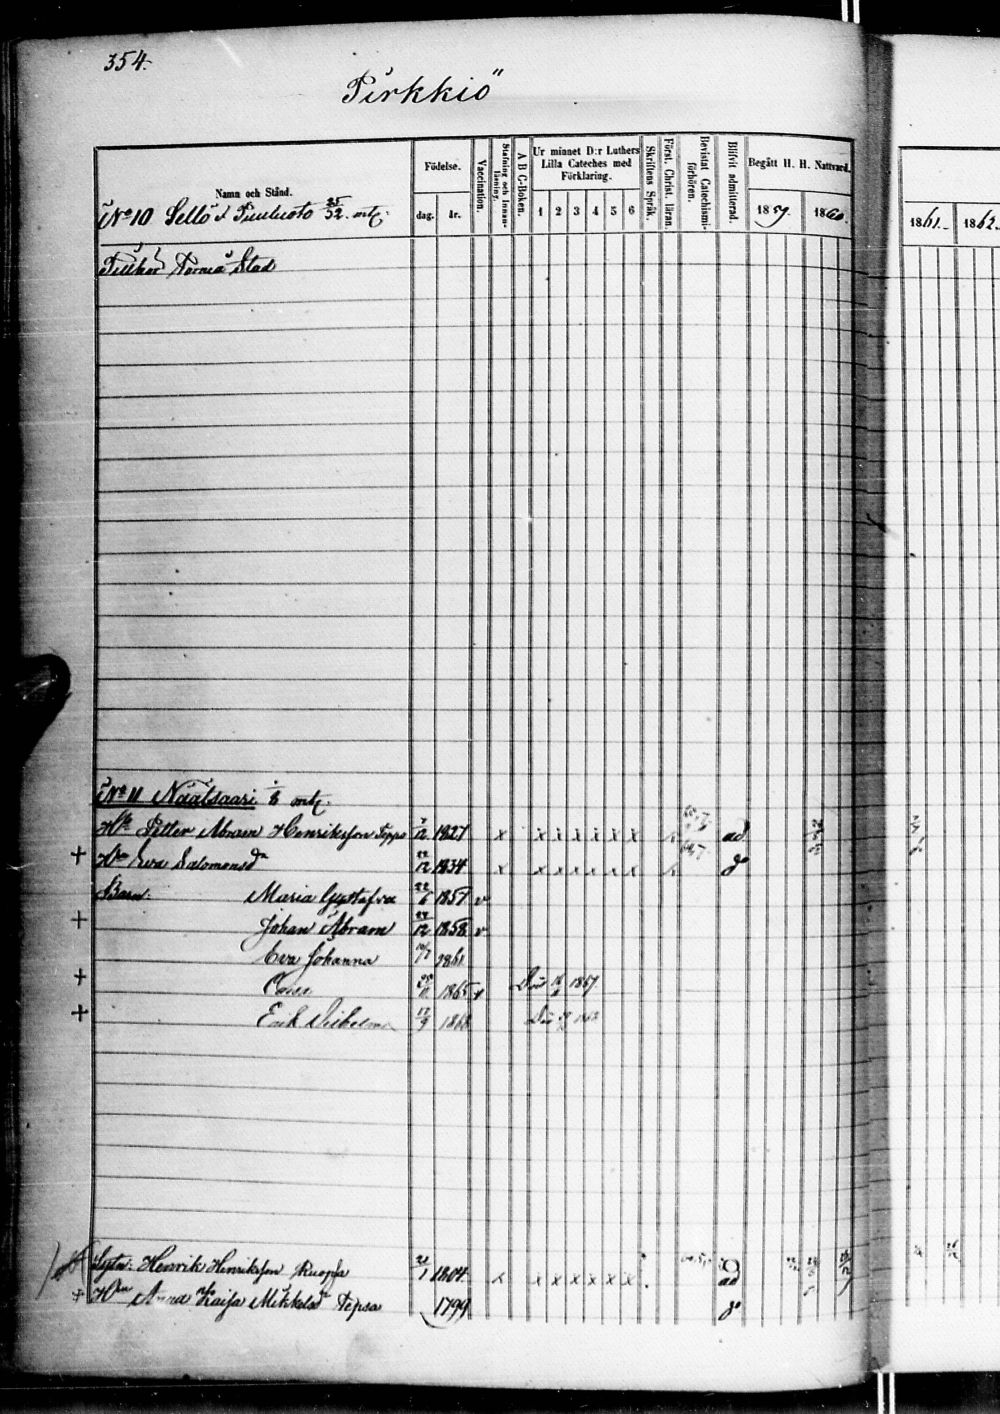 354.
Pirkkiö
Namn och Stånd.
Födelse.
dag.
år.
Vaccination.
Stafning och Innan-
läsning.
A B C-Boken.
Ur minnet D:r Luthers
Lilla Cateches med
Förklaring.
1 2 3 4 5 6
Skriftens Språk.
Först. Christ. läran.
Bevistat Catechismi-
förhören.
Blifvit admitterad.
Begått H. H. Nattvard.
1859. 1860.
1861. 1862.
No 10 Sellö 25/32 mtl.
Tillhör Torneå Stad
No 11 Näätsaari 1/8 mtl.
Petter Abram Henriksson 12 1827 x x x x x x x ad
+ Hu Eva Salomonsdr 22/12 1834 x x x x x x x do
Barn: Maria Gustafva 22/6 1857 v
+ Johan Abram 24/12 1858 v
Eva Johanna 1861
+ 1865 v Död 1867
+ Erik Vilhelm 17/9 1868 Död
Henrik Henriksson Ruopsa 1804 x x x x x x x ad
+ Hu Anna Kaisa Mikkelsdr Tepsa 1799 do